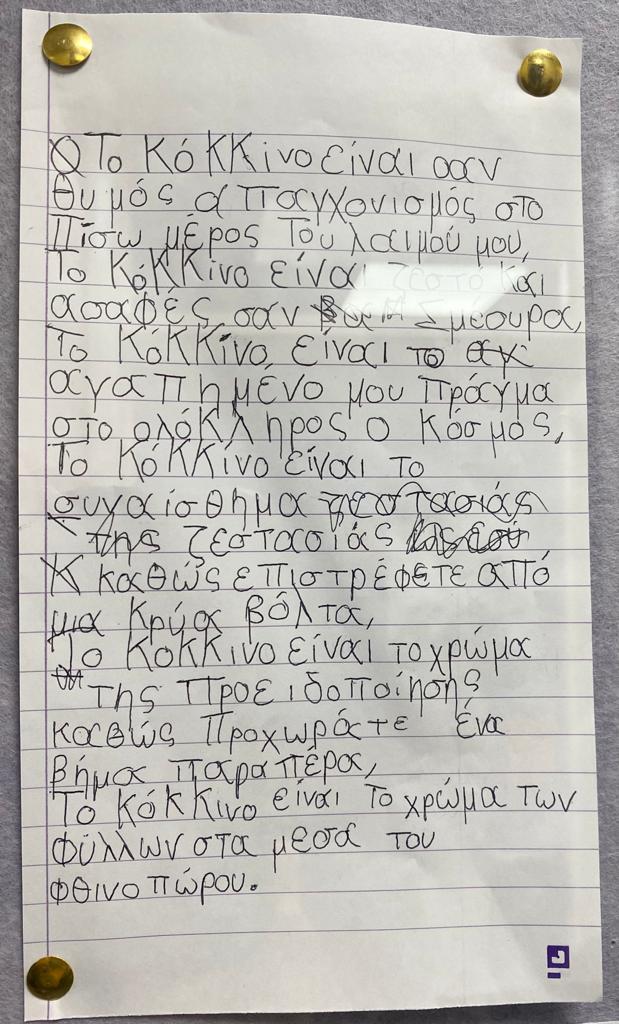 Το Κόκκινο είναι σαν
θυμός α παγχονισμός στο
Πίσω μέρος Του λαιμού μου,
Το Κόκκινο είναι ζεστό και
ασαφές σαν Σμέουρα,
Το Κόκκίνο είναι το αγ
αγαπημένο μου πράγμα
στο ολόκληρος ο κόσμός,
Το Κόκκίνο είναι το
συγαίσθημα ζεστασιάς
της ζεστασιάς
Κ καθώς επιστρέφετε από
μια κρύα βόλτα,
Το Κόκκινο είναι το χρώμα
της Προειδοποίησης
καθώς Προχωράτε ένα
βήμα παραπέρα,
Το Κόκκινο είναι Το χρώμα των
φύλλων στα μεσα του
φθινοπώρου.